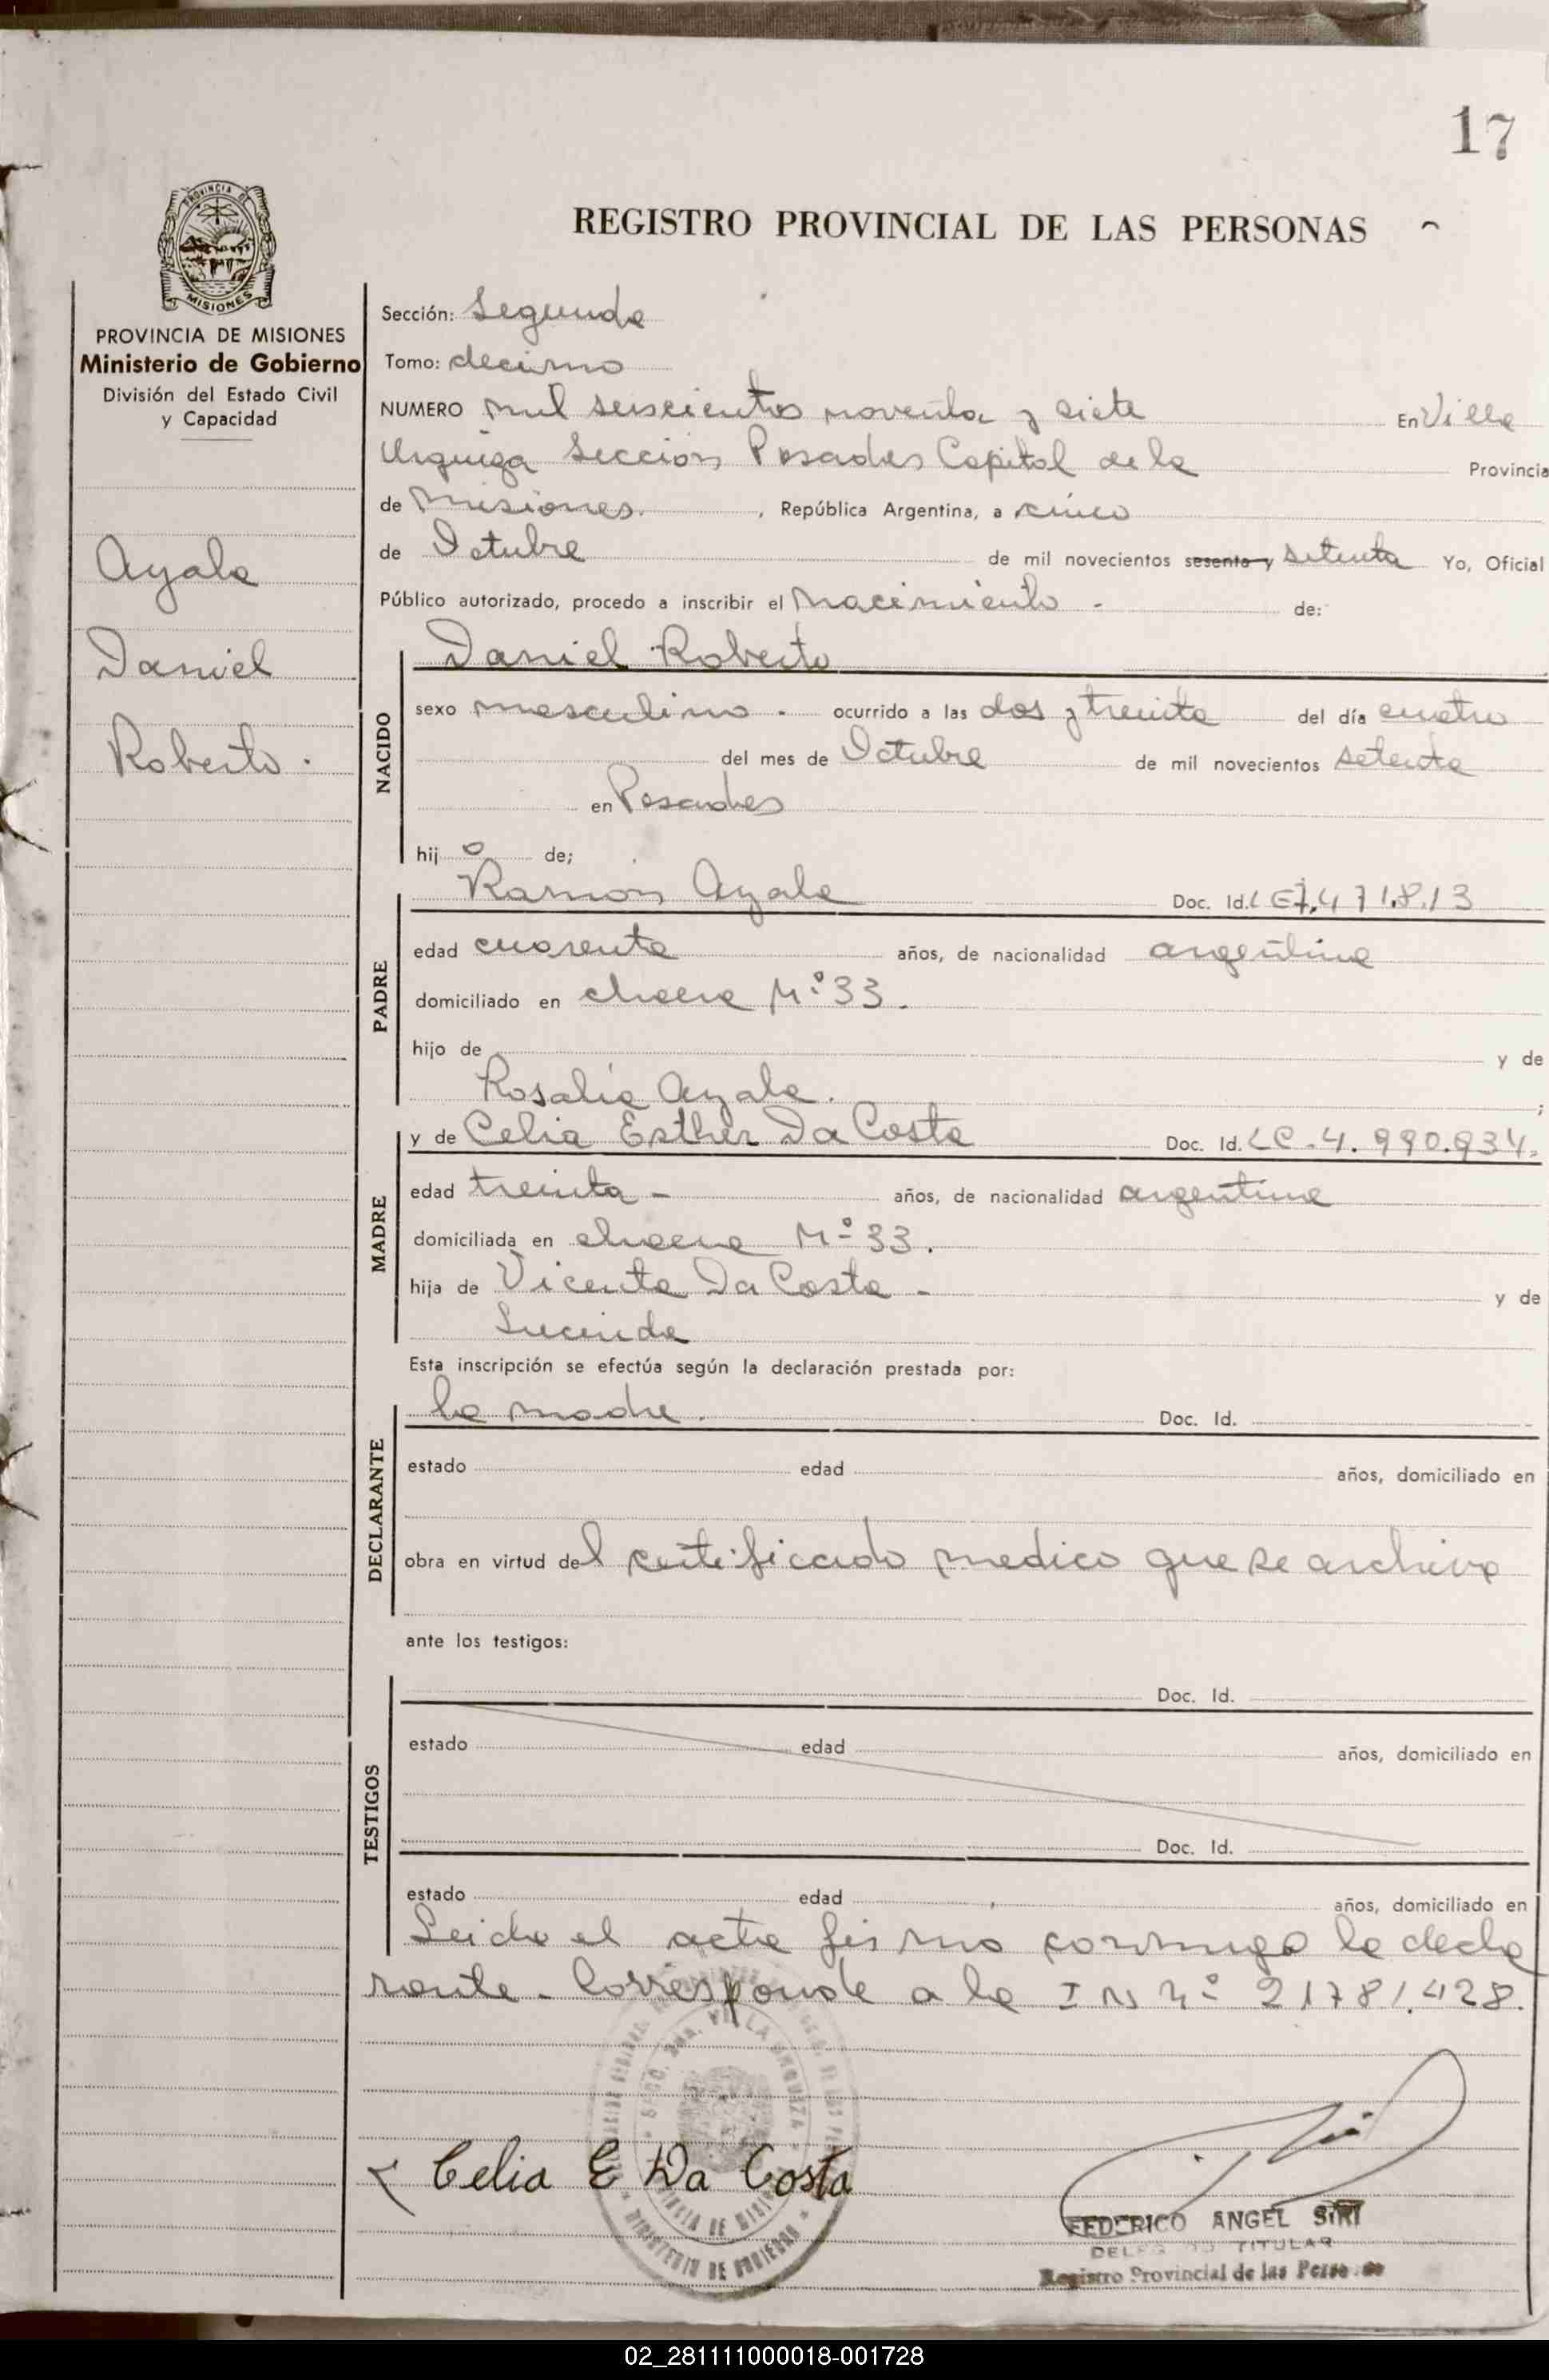 17
REGISTRO PROVINCIAL DE LAS PERSONAS
PROVINCIA DE MISIONES
Ministerio de Gobierno
División del Estado Civil
y Capacidad
Ayala
Daniel
Roberto.
Sección: Segunda
Tomo: decimo
NUMERO mil seiscientos noventa y siete En Villa
Urquiza Seccion Posadas Capital de la Provincia
de Misiones. , República Argentina, a cinco
de Octubre de mil novecientos sesenta y setenta Yo, Oficial
Público autorizado, procedo a inscribir el Nacimiento - de:
NACIDO
Daniel Roberto
sexo masculino - ocurrido a las dos y treinta del día cuatro
del mes de Octubre de mil novecientos setenta
en Posadas
hijo de;
PADRE
Ramón Ayala Doc. Id. LE 7,471.813
edad cuarenta años, de nacionalidad argentina
domiciliado en chacra N° 33.
hijo de y de
Rosalia Ayala. ;
MADRE
y de Celia Esther Da Costa Doc. Id. LC - 4. 990.934.
edad treinta - años, de nacionalidad argentina
domiciliada en chacra N° 33.
hija de Vicente Da Costa - y de
Lucinda
Esta inscripción se efectúa según la declaración prestada por:
DECLARANTE
la madre. Doc. Id.
estado edad años, domiciliado en
obra en virtud del certificado medico que se archiva
ante los testigos:
TESTIGOS
Doc. Id.
estado edad años, domiciliado en
Doc. Id.
estado edad años, domiciliado en
Leida el acta firma conmigo la decla
rante - Corresponde a la I N N° 21781.428.
Celia E Da Costa
FEDERICO ANGEL SIRI
TITULAR
Registro Provincial de las
02_281111000018-001728